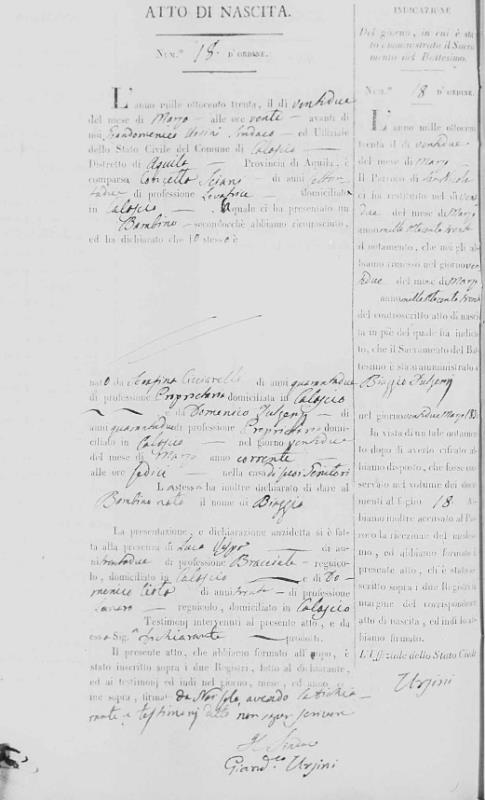 ATTO DI NASCITA.
Num.° 18. D'ORDINE.
L'anno mille ottocento trenta, il dì ventidue
del mese di Marzo alle ore venti avanti di
noi Giandomenico Ursini Sindaco ed Uffiziale
dello Stato Civile del Comune di Calascio
Distretto di Aquila Provincia di Aquila, è
comparsa Concetta di anni
di professione Levatrice domiciliata
in Calascio quale ci ha presentato un
Bambino secondochè abbiamo riconosciuto,
ed ha dichiarato che lo stesso è
nato da Serafina Ciccarelli di anni quarantadue
di professione Proprietaria domiciliata in Calascio
di Domenico di
anni quarantadue di professione Proprietario domi-
ciliato in Calascio nel giorno ventidue
del mese di Marzo anno corrente
alle ore sedici nella casa di suoi Genitori
La stessa ha inoltre dichiarato di dare al
Bambino nato il nome di Biaggio
La presentazione, e dichiarazione anzidetta si è fat-
ta alla presenza di Luca di an-
ni trentadue di professione Bracciale regnico-
lo, domiciliato in Calascio e di Do-
menico di anni trenta di professione
regnicolo, domiciliato in Calascio
Testimonj intervenuti al presente atto, e da
esso Sig.a Dichiarante prodotti.
Il presente atto, che abbiamo formato all'uopo, è
stato inscritto sopra i due Registri, letto al dichiarante,
ed ai testimonj ed indi nel giorno, mese, ed anno co-
me sopra, firmato da Noi solo, avendo la dichia-
rante e testimonj detto non saper scrivere
Il Sindaco
Giand.co Ursini
INDICAZIONE
Del giorno, in cui è sta-
to amministrato il Sacra-
mento del Battesimo.
Num.° 18 D'ORDINE.
L'anno mille ottocento
trenta il dì ventidue
del mese di Marzo
Il Parroco di S. Nicola
ci ha restituito nel dì venti-
due del mese di Marzo
anno mille ottocento trenta
il notamento, che noi gli ab-
biamo rimesso nel giorno ven-
tidue del mese di Marzo
anno mille ottocento trenta
del controscritto atto di nasci-
ta in piè del quale ha indica-
to, che il Sacramento del Bat-
tesimo è stato amministrato a
Biaggio
nel giorno ventidue Marzo 1830
In vista di un tale notamen-
to dopo di averlo cifrato ab-
biamo disposto, che fosse con-
servato nel volume dei docu-
menti al foglio 18. Ab-
biamo inoltre accusato al Par-
roco la ricezione del medesi-
mo, ed abbiamo formato il
presente atto, ch'è stato in-
scritto sopra i due Registri in
margine del corrispondente
atto di nascita, ed indi lo ab-
biamo firmato.
L'Uffiziale dello Stato Civile
Ursini